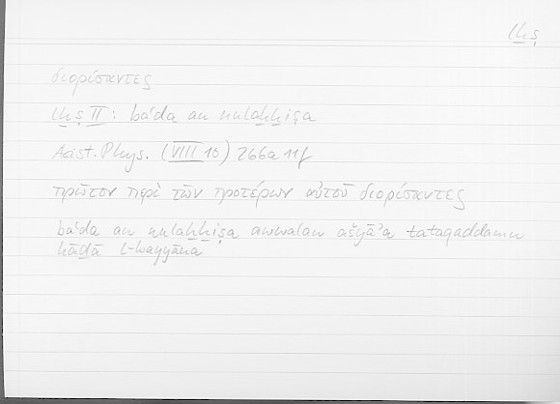 lḫṣ
διορίσαντες
lḫṣ II : baʿda an nulaḫḫiṣa
Arist. Phys. (VIII 10) 266a 11f
πρῶτον περὶ τῶν προτέρων αὐτοῦ διορίσαντες
baʿda an nulaḫḫiṣa awwalan ašyāʾa tataqaddamu
hāḏā l-bayyāna